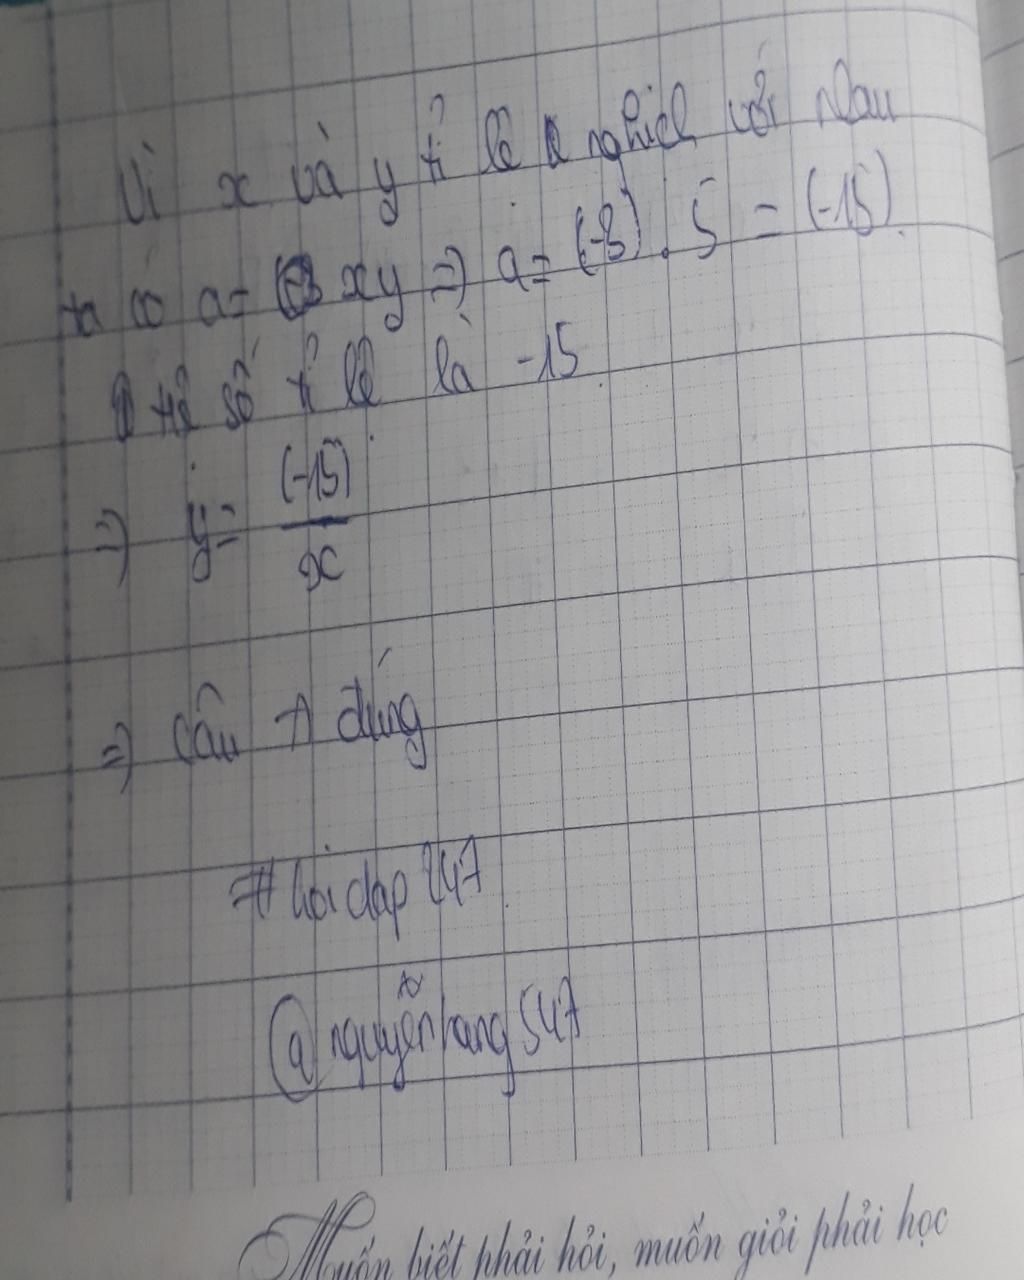 Vì x và y tỉ lệ nghịch với nhau
ta có a = xy => a = (-3) . 5 = (-15)
tỉ số tỉ lệ là -15.
=> y = (-15)/x
=> Câu A đúng
# hoidap247
@nguyễnhang547
Muốn biết phải hỏi, muốn giỏi phải học